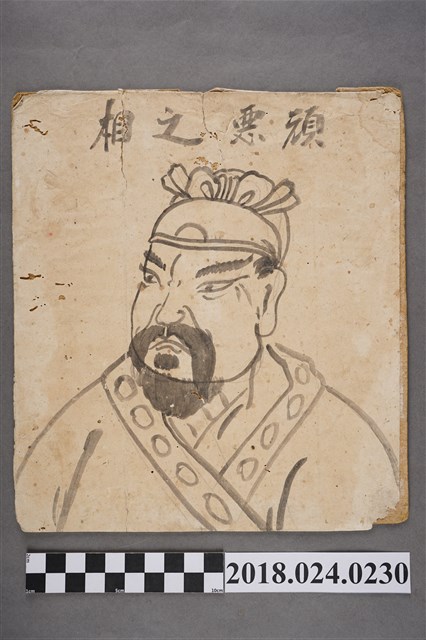 頑悪之相
5cm
10cm
2018.024.0230